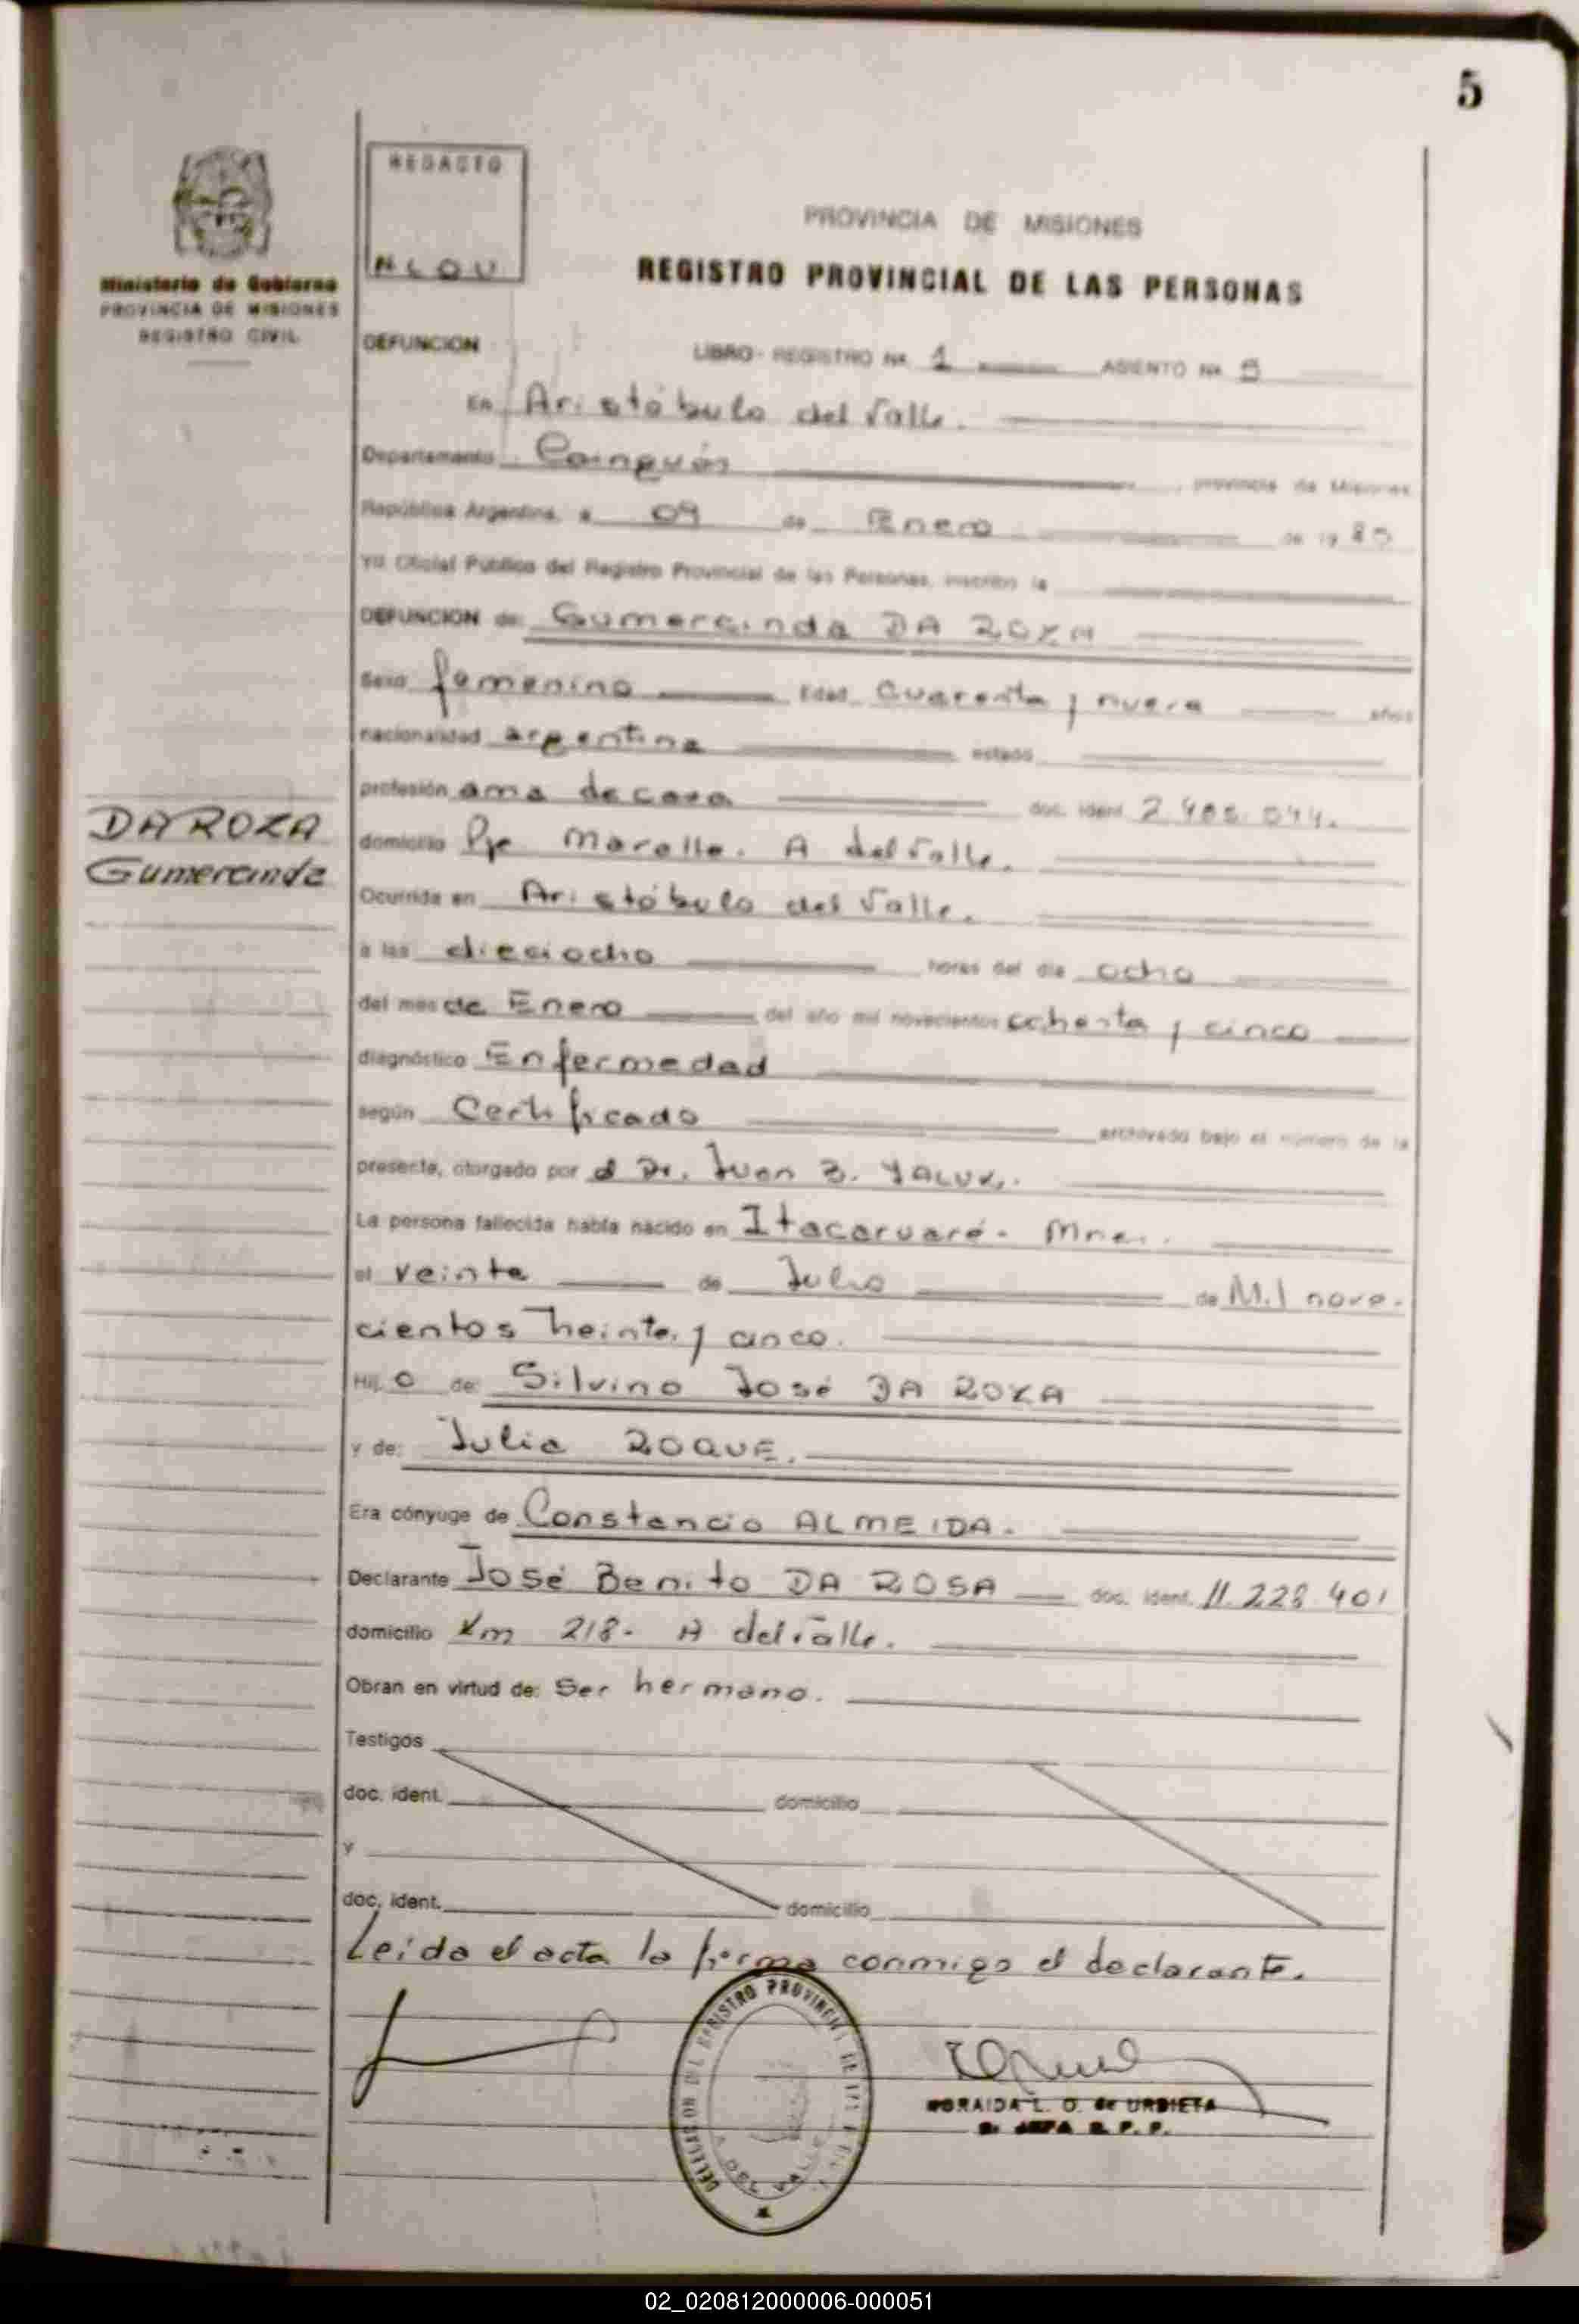 5
REDACTO
NLOU
Ministerio de Gobierno
PROVINCIA DE MISIONES
REGISTRO CIVIL
PROVINCIA DE MISIONES
REGISTRO PROVINCIAL DE LAS PERSONAS
DEFUNCION LIBRO - REGISTRO Nº 1 ASIENTO Nº 5
En Aristóbulo del Valle.
Departamento Cainguás , provincia de Misiones
República Argentina, a 09 de Enero de 19 85
Yo Oficial Público del Registro Provincial de las Personas, inscribo la
DEFUNCION de: Gumercinda DA ROZA
Sexo femenino Edad Cuarenta y nueve años
nacionalidad argentina estado
profesión ama de casa doc. ident.
DA ROZA
Gumercinda
domicilio Pje A del Valle.
Ocurrida en Aristóbulo del Valle.
a las dieciocho horas del día ocho
del mes de Enero del año mil novecientos ochenta y cinco
diagnóstico Enfermedad
según Certificado archivado bajo el número de la
presente, otorgado por el Dr. Juan B.
La persona fallecida había nacido en Itacaruaré - Mnes.
el veinte de Julio de Mil nove-
cientos treinta y cinco.
Hij o de: Silvino José DA ROZA
y de: Julia ROQUE.
Era cónyuge de Constancio ALMEIDA.
Declarante José Benito DA ROSA doc. ident. 11.228.401
domicilio Km 218 - A del Valle.
Obran en virtud de: Ser hermano.
Testigos
doc. ident. domicilio
y
doc. ident. domicilio
Leida el acta la firma conmigo el declarante.
DELEGACION DEL REGISTRO PROVINCIAL DE LAS
A. DEL VALLE
NORAIDA L. O. de URBIETA
JEFA R. P. P.
02_020812000006-000051